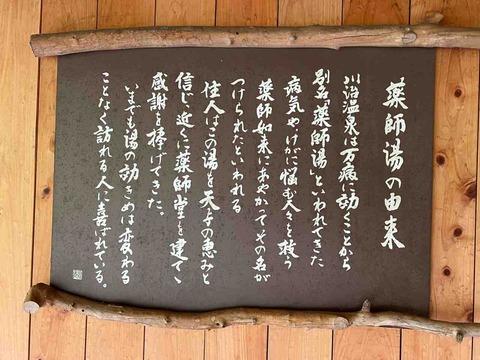 薬師湯の由来
川治温泉は万病に効くことから
別名「薬師湯」といわれてきた
病気や、けがに悩む人々を救う
薬師如来にあやかってその名が
つけられたといわれる
住人はこの湯を天与の恵みと
信じ、近くに薬師堂を建て
感謝を捧げてきた。
いまでも湯の効きめは変わる
ことなく訪れる人に喜ばれている。